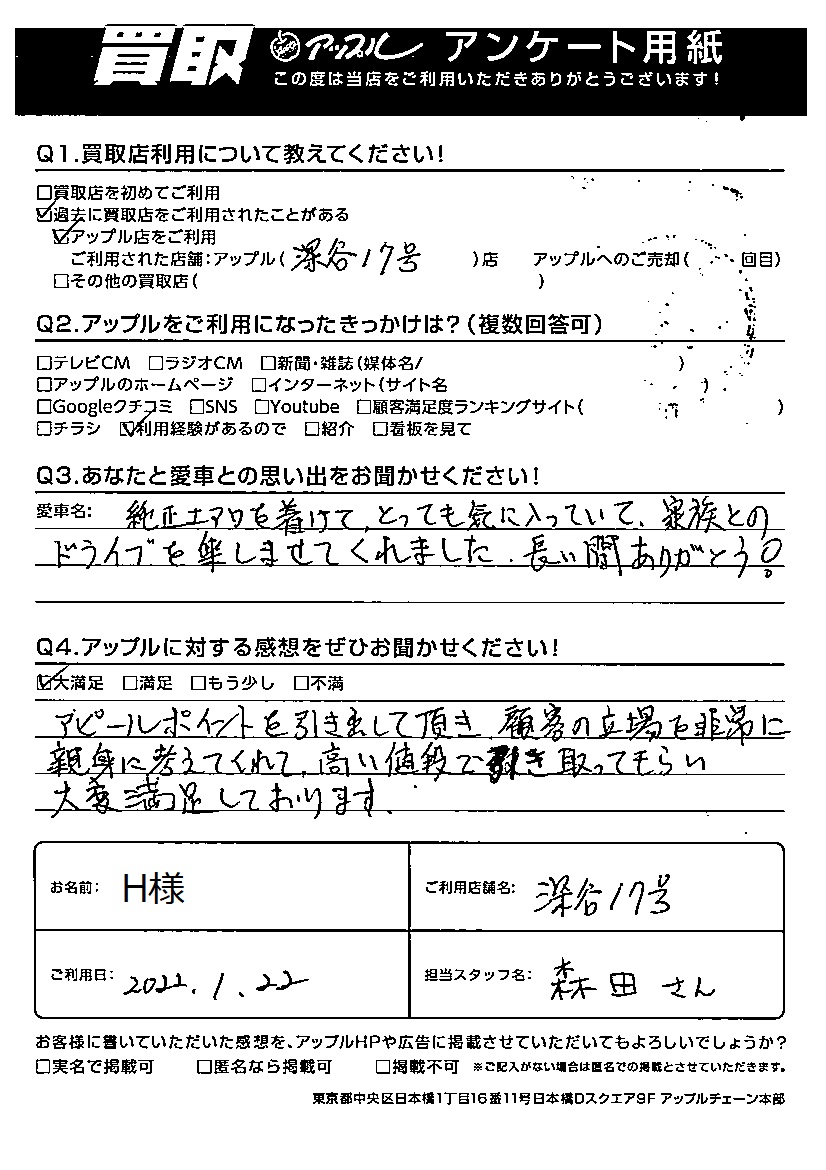 買取 アップル アンケート用紙
この度は当店をご利用いただきありがとうございます!
Q1.買取店利用について教えてください!
□買取店を初めてご利用
☑過去に買取店をご利用されたことがある
☑アップル店をご利用
ご利用された店舗:アップル( 深谷17号 )店 アップルへのご売却( 回目)
□その他の買取店( )
Q2.アップルをご利用になったきっかけは?(複数回答可)
□テレビCM □ラジオCM □新聞・雑誌(媒体名/ )
□アップルのホームページ □インターネット(サイト名 )
□Googleクチコミ □SNS □Youtube □顧客満足度ランキングサイト( )
□チラシ ☑利用経験があるので □紹介 □看板を見て
Q3.あなたと愛車との思い出をお聞かせください!
愛車名: 純正エアロを着けて、とっても気に入っていて、家族との
ドライブを楽しませてくれました。長い間ありがとう!
Q4.アップルに対する感想をぜひお聞かせください!
☑大満足 □満足 □もう少し □不満
アピールポイントを引き出して頂き、顧客の立場を非常に
親身に考えてくれて、高い値段で引き取ってもらい
大変満足しております。
お名前: H様 ご利用店舗名: 深谷17号
ご利用日: 2022.1.22 担当スタッフ名: 森田さん
お客様に書いていただいた感想を、アップルHPや広告に掲載させていただいてもよろしいでしょうか?
□実名で掲載可 □匿名なら掲載可 □掲載不可 ※ご記入がない場合は匿名での掲載とさせていただきます。
東京都中央区日本橋1丁目16番11号日本橋Dスクエア9F アップルチェーン本部